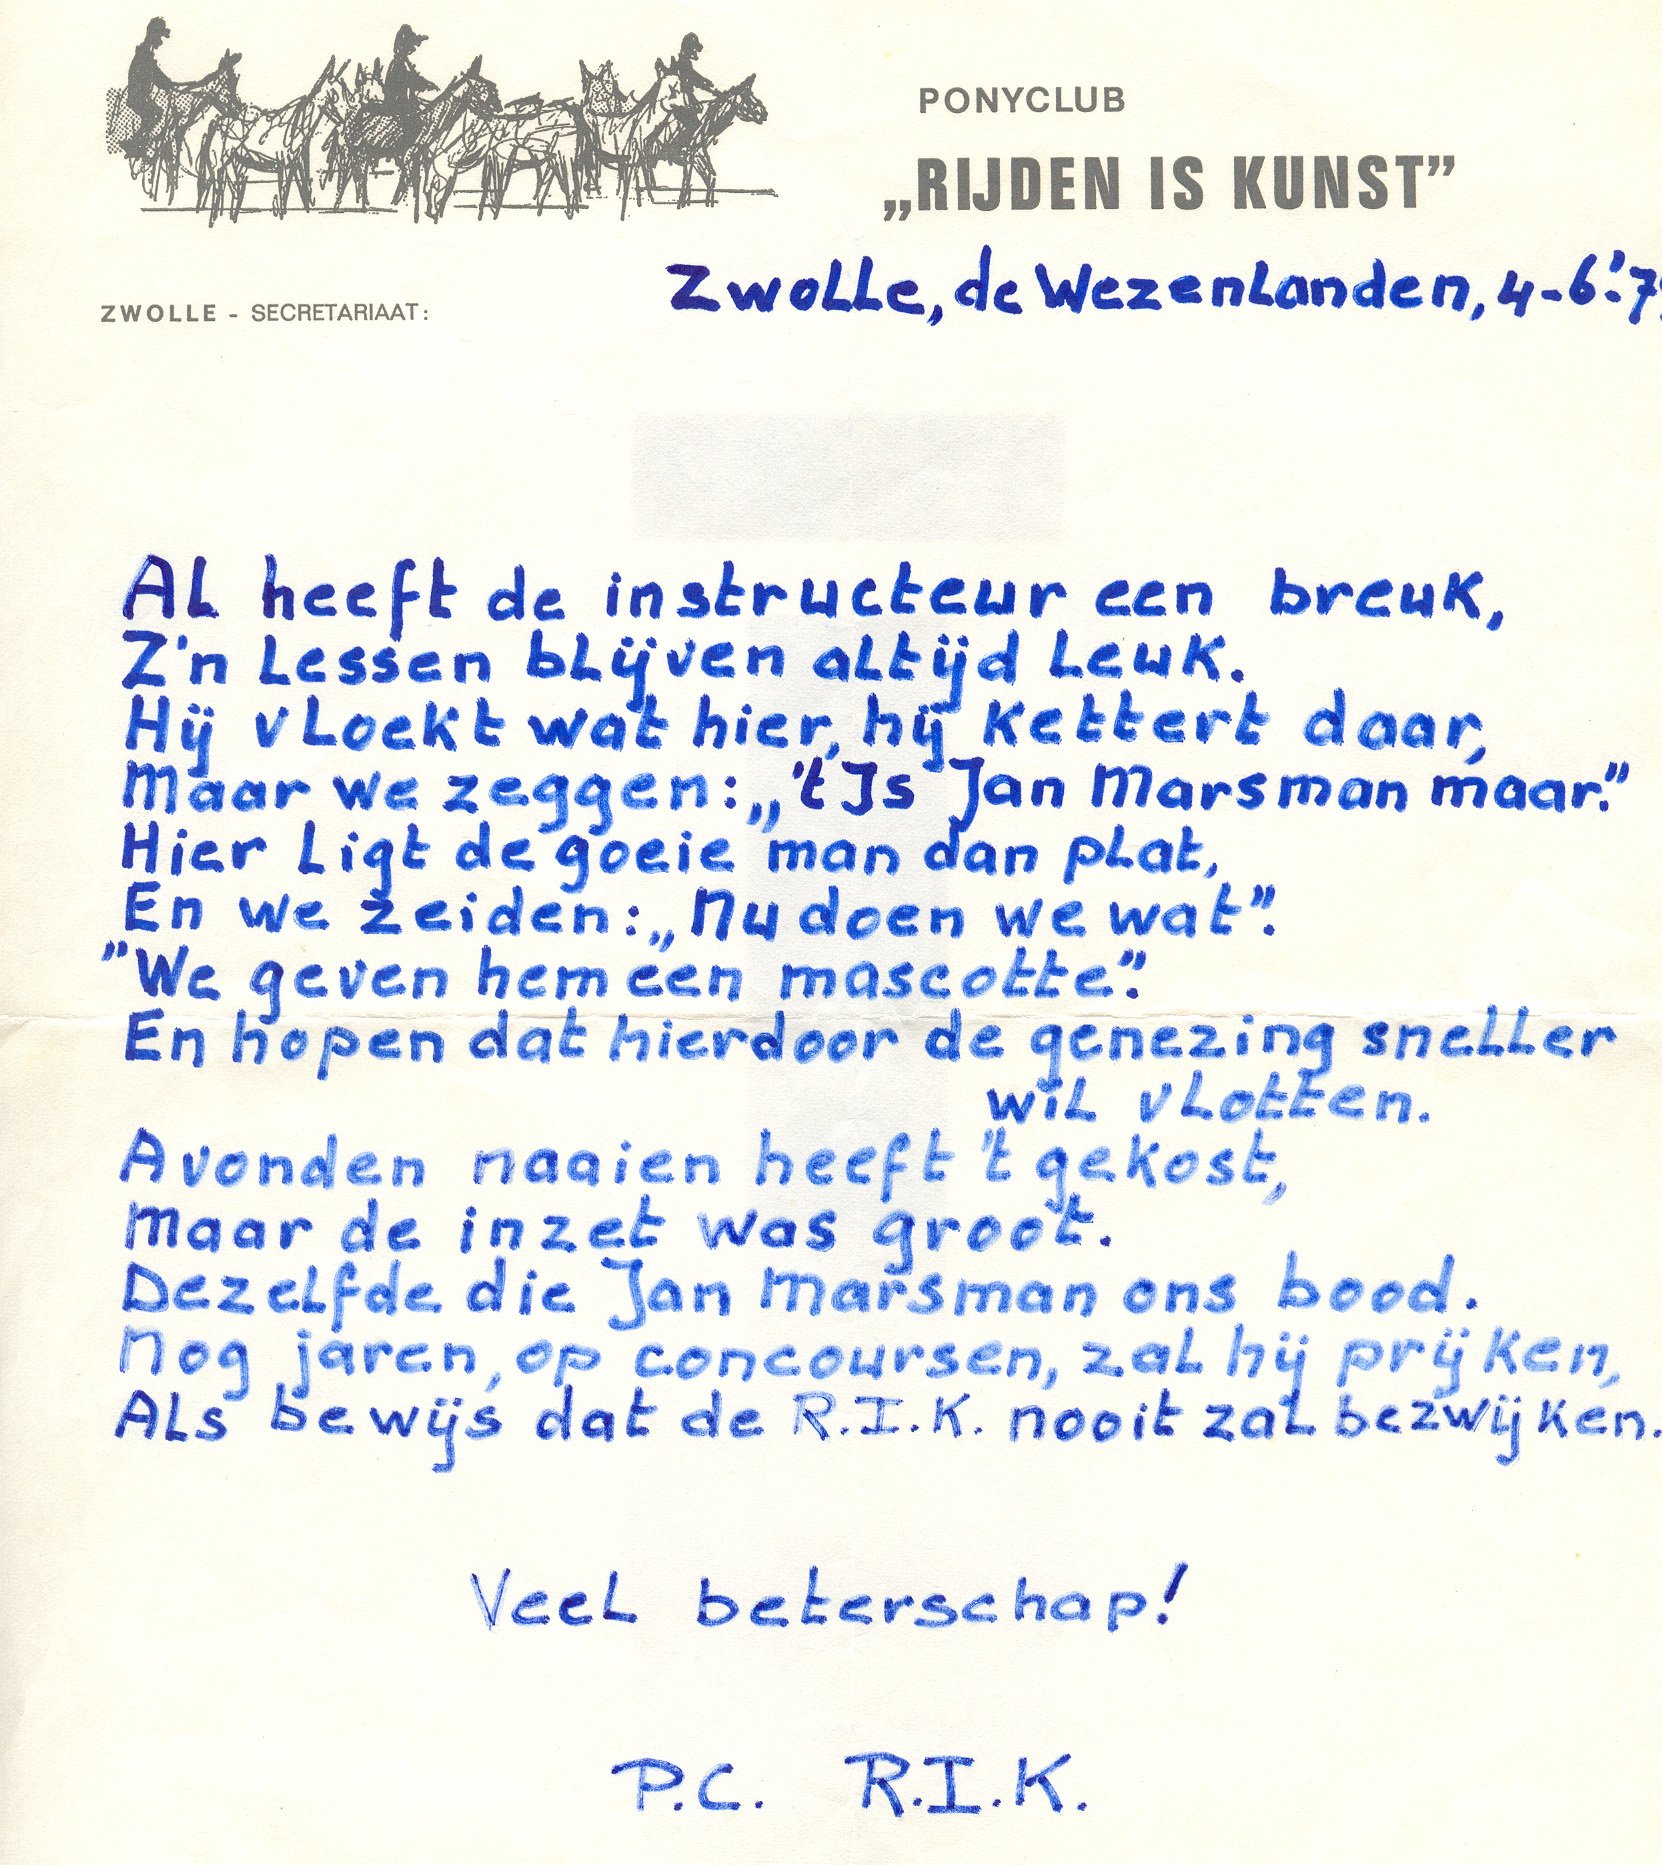 PONYCLUB
„RIJDEN IS KUNST”
Zwolle, de Wezenlanden, 4-6-'7
ZWOLLE - SECRETARIAAT:
Al heeft de instructeur een breuk,
Z'n lessen blijven altijd leuk.
Hij vloekt wat hier, hij kettert daar,
Maar we zeggen: „'t Is Jan Marsman maar.”
Hier ligt de goeie man dan plat,
En we zeiden: „Nu doen we wat”.
"We geven hem een mascotte".
En hopen dat hierdoor de genezing sneller
wil vlotten.
Avonden naaien heeft 't gekost,
Maar de inzet was groot.
Dezelfde die Jan Marsman ons bood.
Nog jaren, op concoursen, zal hij prijken,
Als bewijs dat de R.I.K. nooit zal bezwijken.
Veel beterschap!
P.C. R.I.K.